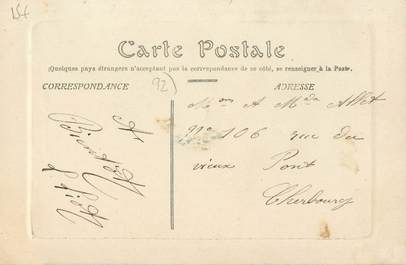 Carte Postale
(Quelques pays étrangers n'acceptant pas la correspondance de ce côté, se renseigner à la Poste.
CORRESPONDANCE
ADRESSE
92)
A
Bientôt
Mr A Mda
No 106 rue du
vieux Pont
Cherbourg